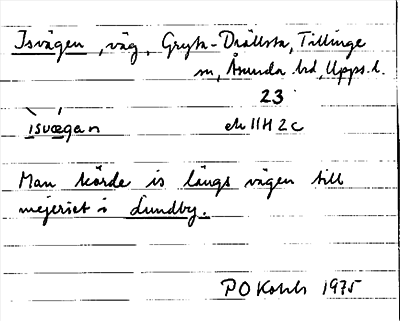 Isvägen, väg, Gryta-Drällsta, Tillinge
sn, Åsunda hd, Upps. l.
23
ìsvægan ek 11H 2c
Man körde is längs vägen till
mejeriet i Lundby.
P O 1975